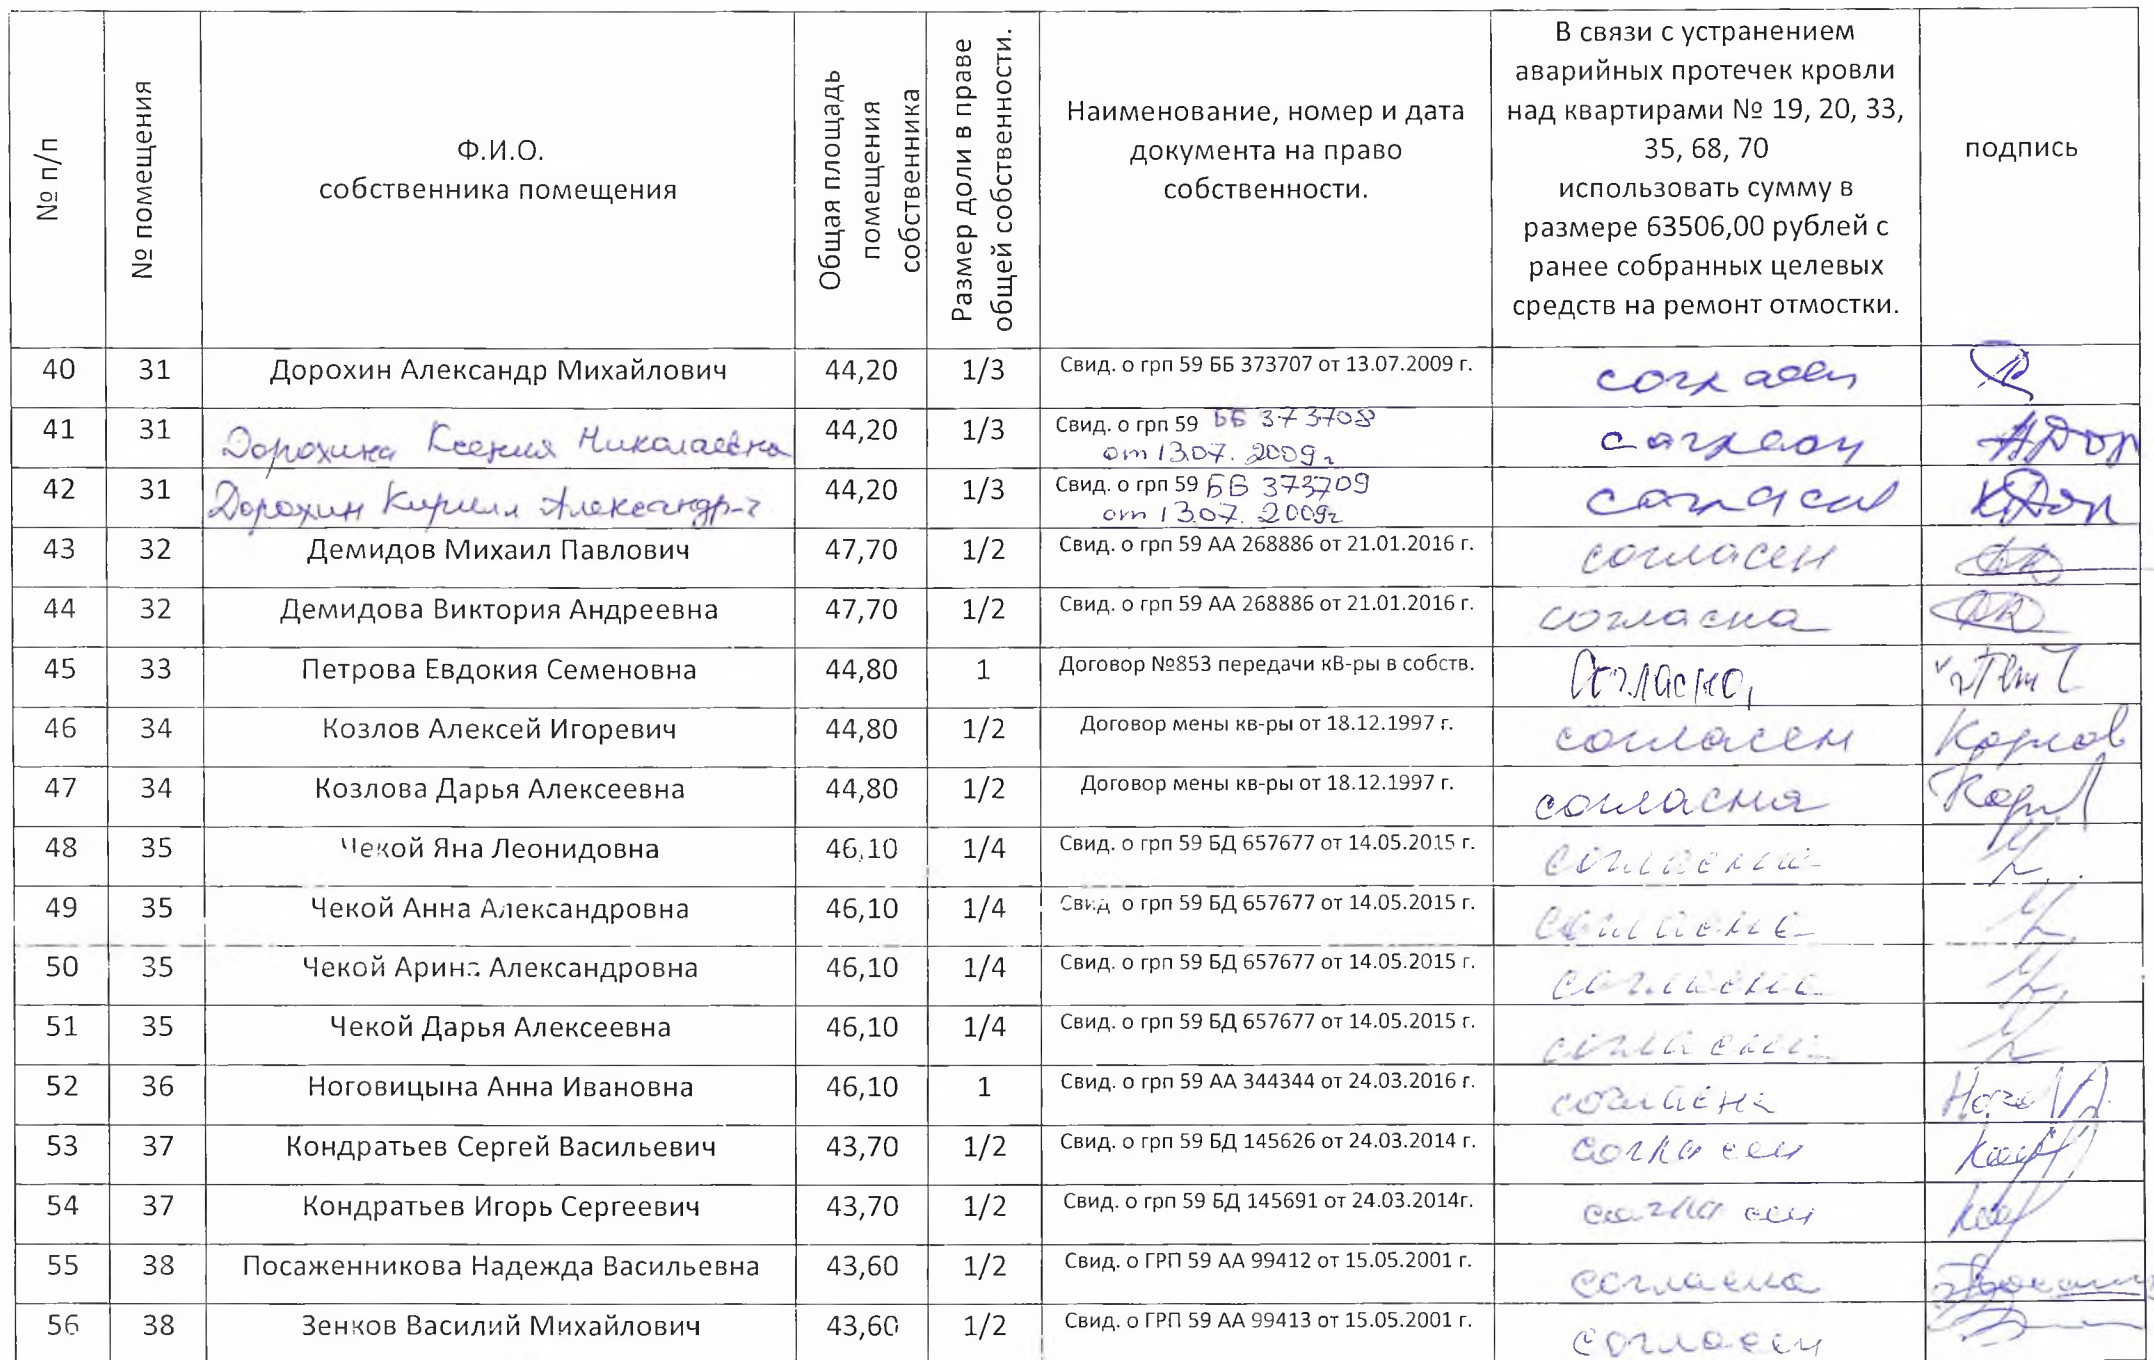 № п/п
№ помещения
Ф.И.О.
собственника помещения
Общая площадь
помещения
собственника
Размер доли в праве
общей собственности.
Наименование, номер и дата
документа на право
собственности.
В связи с устранением
аварийных протечек кровли
над квартирами № 19, 20, 33,
35, 68, 70
использовать сумму в
размере 63506,00 рублей с
ранее собранных целевых
средств на ремонт отмостки.
подпись
40 31 Дорохин Александр Михайлович 44,20 1/3 Свид. о грп 59 ББ 373707 от 13.07.2009 г. согласен
41 31 Дорохина Ксения Николаевна 44,20 1/3 Свид. о грп 59 ББ 373708
от 13.07. 2009г
согласен
42 31 Дорохин Кирилл Александр-г 44,20 1/3 Свид. о грп 59 ББ 373709
от 13.07. 2009г
согласен
43 32 Демидов Михаил Павлович 47,70 1/2 Свид. о грп 59 АА 268886 от 21.01.2016 г. согласен
44 32 Демидова Виктория Андреевна 47,70 1/2 Свид. о грп 59 АА 268886 от 21.01.2016 г. согласна
45 33 Петрова Евдокия Семеновна 44,80 1 Договор №853 передачи кВ-ры в собств. Согласна,
46 34 Козлов Алексей Игоревич 44,80 1/2 Договор мены кв-ры от 18.12.1997 г. согласен Козлов
47 34 Козлова Дарья Алексеевна 44,80 1/2 Договор мены кв-ры от 18.12.1997 г. согласна
48 35 Чекой Яна Леонидовна 46,10 1/4 Свид. о грп 59 БД 657677 от 14.05.2015 г. согласна
49 35 Чекой Анна Александровна 46,10 1/4 Свид о грп 59 БД 657677 от 14.05.2015 г. согласна
50 35 Чекой Арина Александровна 46,10 1/4 Свид. о грп 59 БД 657677 от 14.05.2015 г. согласна
51 35 Чекой Дарья Алексеевна 46,10 1/4 Свид. о грп 59 БД 657677 от 14.05.2015 г. согласна
52 36 Ноговицына Анна Ивановна 46,10 1 Свид. о грп 59 АА 344344 от 24.03.2016 г. согласна
53 37 Кондратьев Сергей Васильевич 43,70 1/2 Свид. о грп 59 БД 145626 от 24.03.2014 г. согласен
54 37 Кондратьев Игорь Сергеевич 43,70 1/2 Свид. о грп 59 БД 145691 от 24.03.2014г. согласен
55 38 Посаженникова Надежда Васильевна 43,60 1/2 Свид. о ГРП 59 АА 99412 от 15.05.2001 г. согласна
56 38 Зенков Василий Михайлович 43,60 1/2 Свид. о ГРП 59 АА 99413 от 15.05.2001 г. согласен